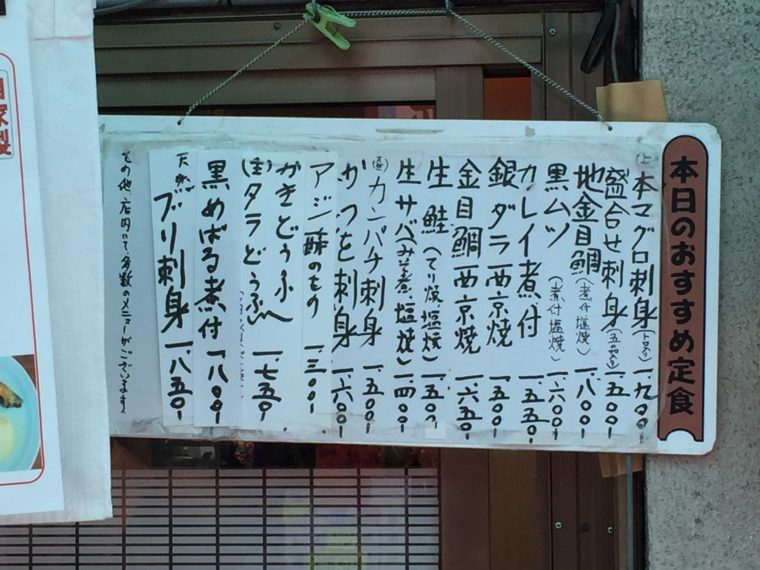 本日のおすすめ定食
(上)本マグロ刺身 一、九〇〇-
盛合せ刺身(五品盛) 一、五〇〇-
地金目鯛(煮付塩焼) 一、八〇〇-
黒ムツ(煮付塩焼) 一、六〇〇-
カレイ煮付 一、五五〇-
銀ダラ西京焼 一、五〇〇-
金目鯛西京焼 一、六五〇-
生鮭(てり焼塩焼) 一、五〇〇-
生サバ(みそ煮、塩焼) 一、四〇〇-
カンパチ刺身 一、五〇〇-
かつを刺身 一、六〇〇-
アジ酢のもの 一、三〇〇-
かきどうふ
(生)タラどうふ 一、七五〇-
黒めばる煮付 一、八〇〇-
天然ブリ刺身 一、八五〇-
その他、店内にて多数のメニューがございます
自家製